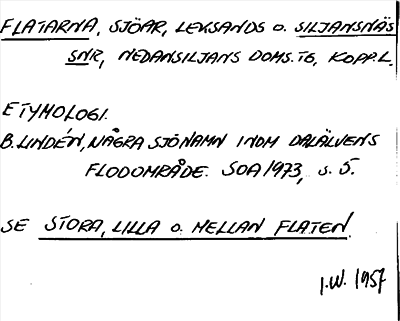 FLATARNA, SJÖAR, LEKSANDS O. SILJANSNÄS
SNR, NEDANSILJANS DOMS.TG, KOPP.L.
ETYMOLOGI.
B. LINDÉN, NÅGRA SJÖNAMN INOM DALÄLVENS
FLODOMRÅDE. SOÅ 1973, s. 5.
SE STORA, LILLA O. MELLAN FLATEN.
I.W. 1957